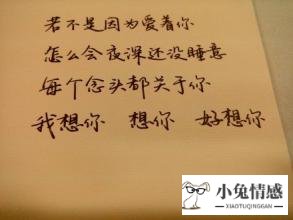 若不是因为爱着你
怎么会夜深还没睡意
每个念头都关于你
我想你 想你 好想你
小兔情感
XIAOTUQINGGAN